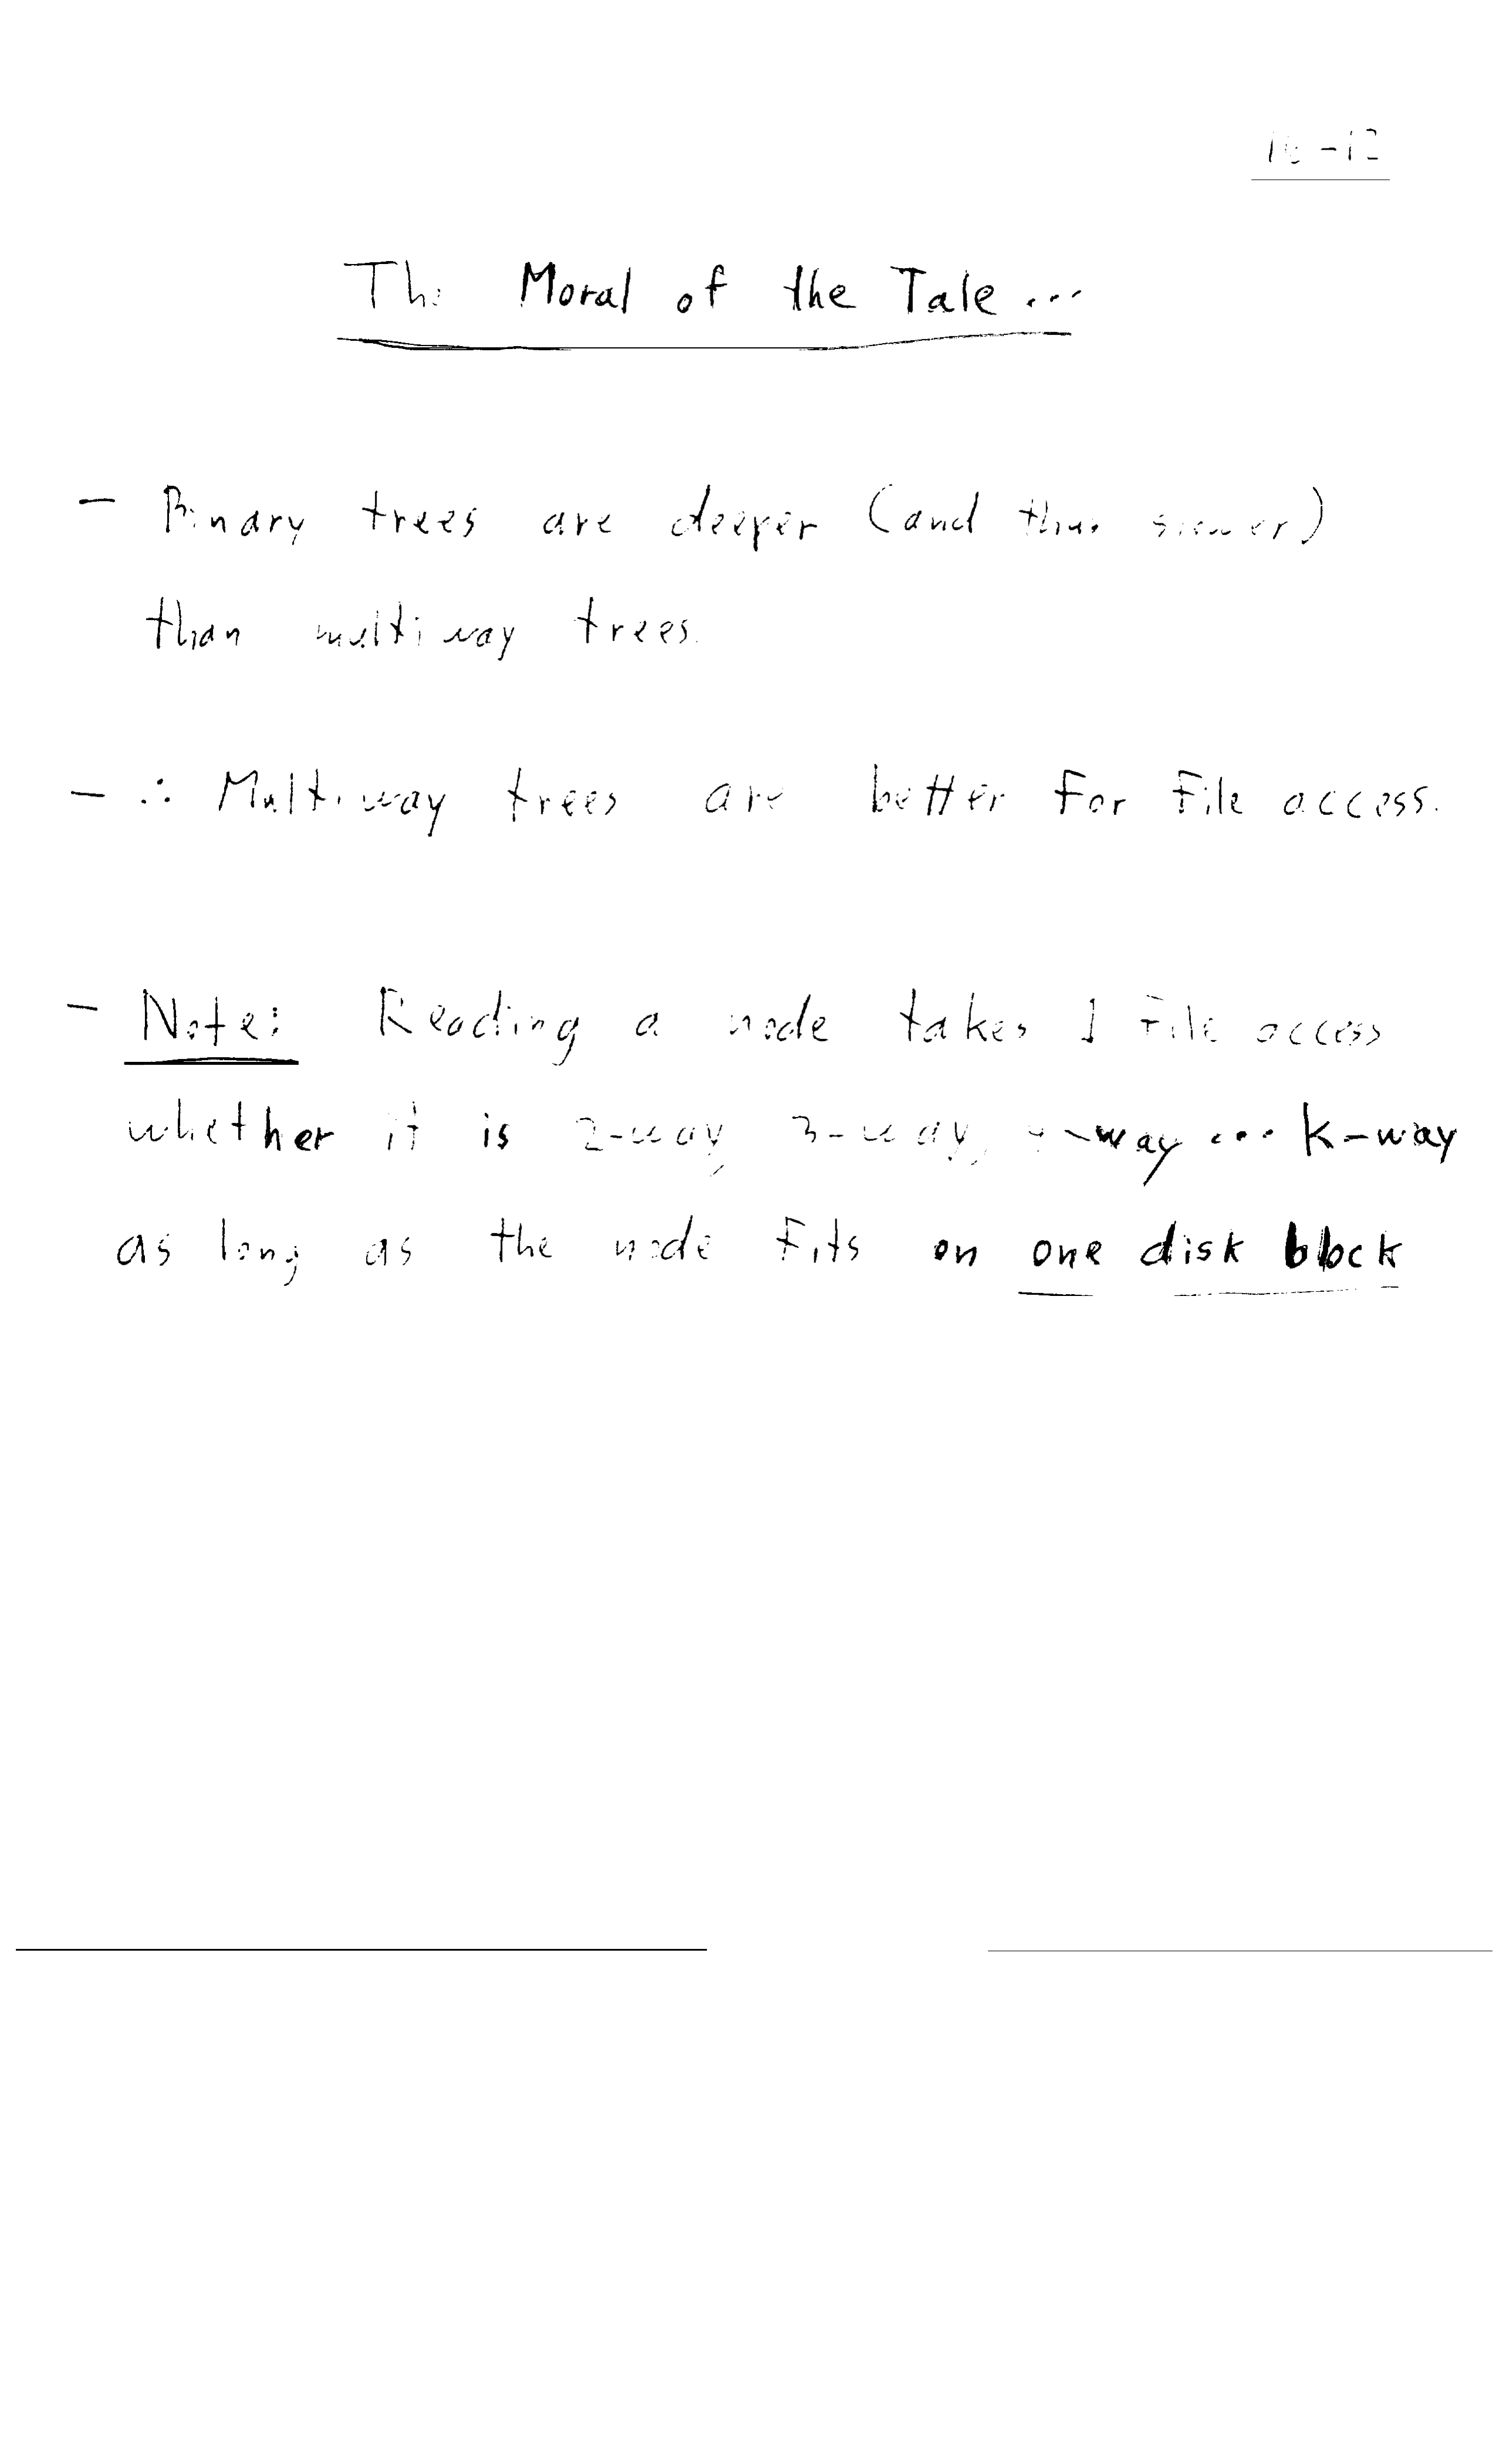 The Moral of the Tale...
- Binary trees are deeper (and thus slower)
than multiway trees.
- ∴ Multiway trees are better for file access.
- Note: Reading a node takes 1 file access
whether it is 2-way, 3-way, 4-way ... k-way
as long as the node fits on one disk block